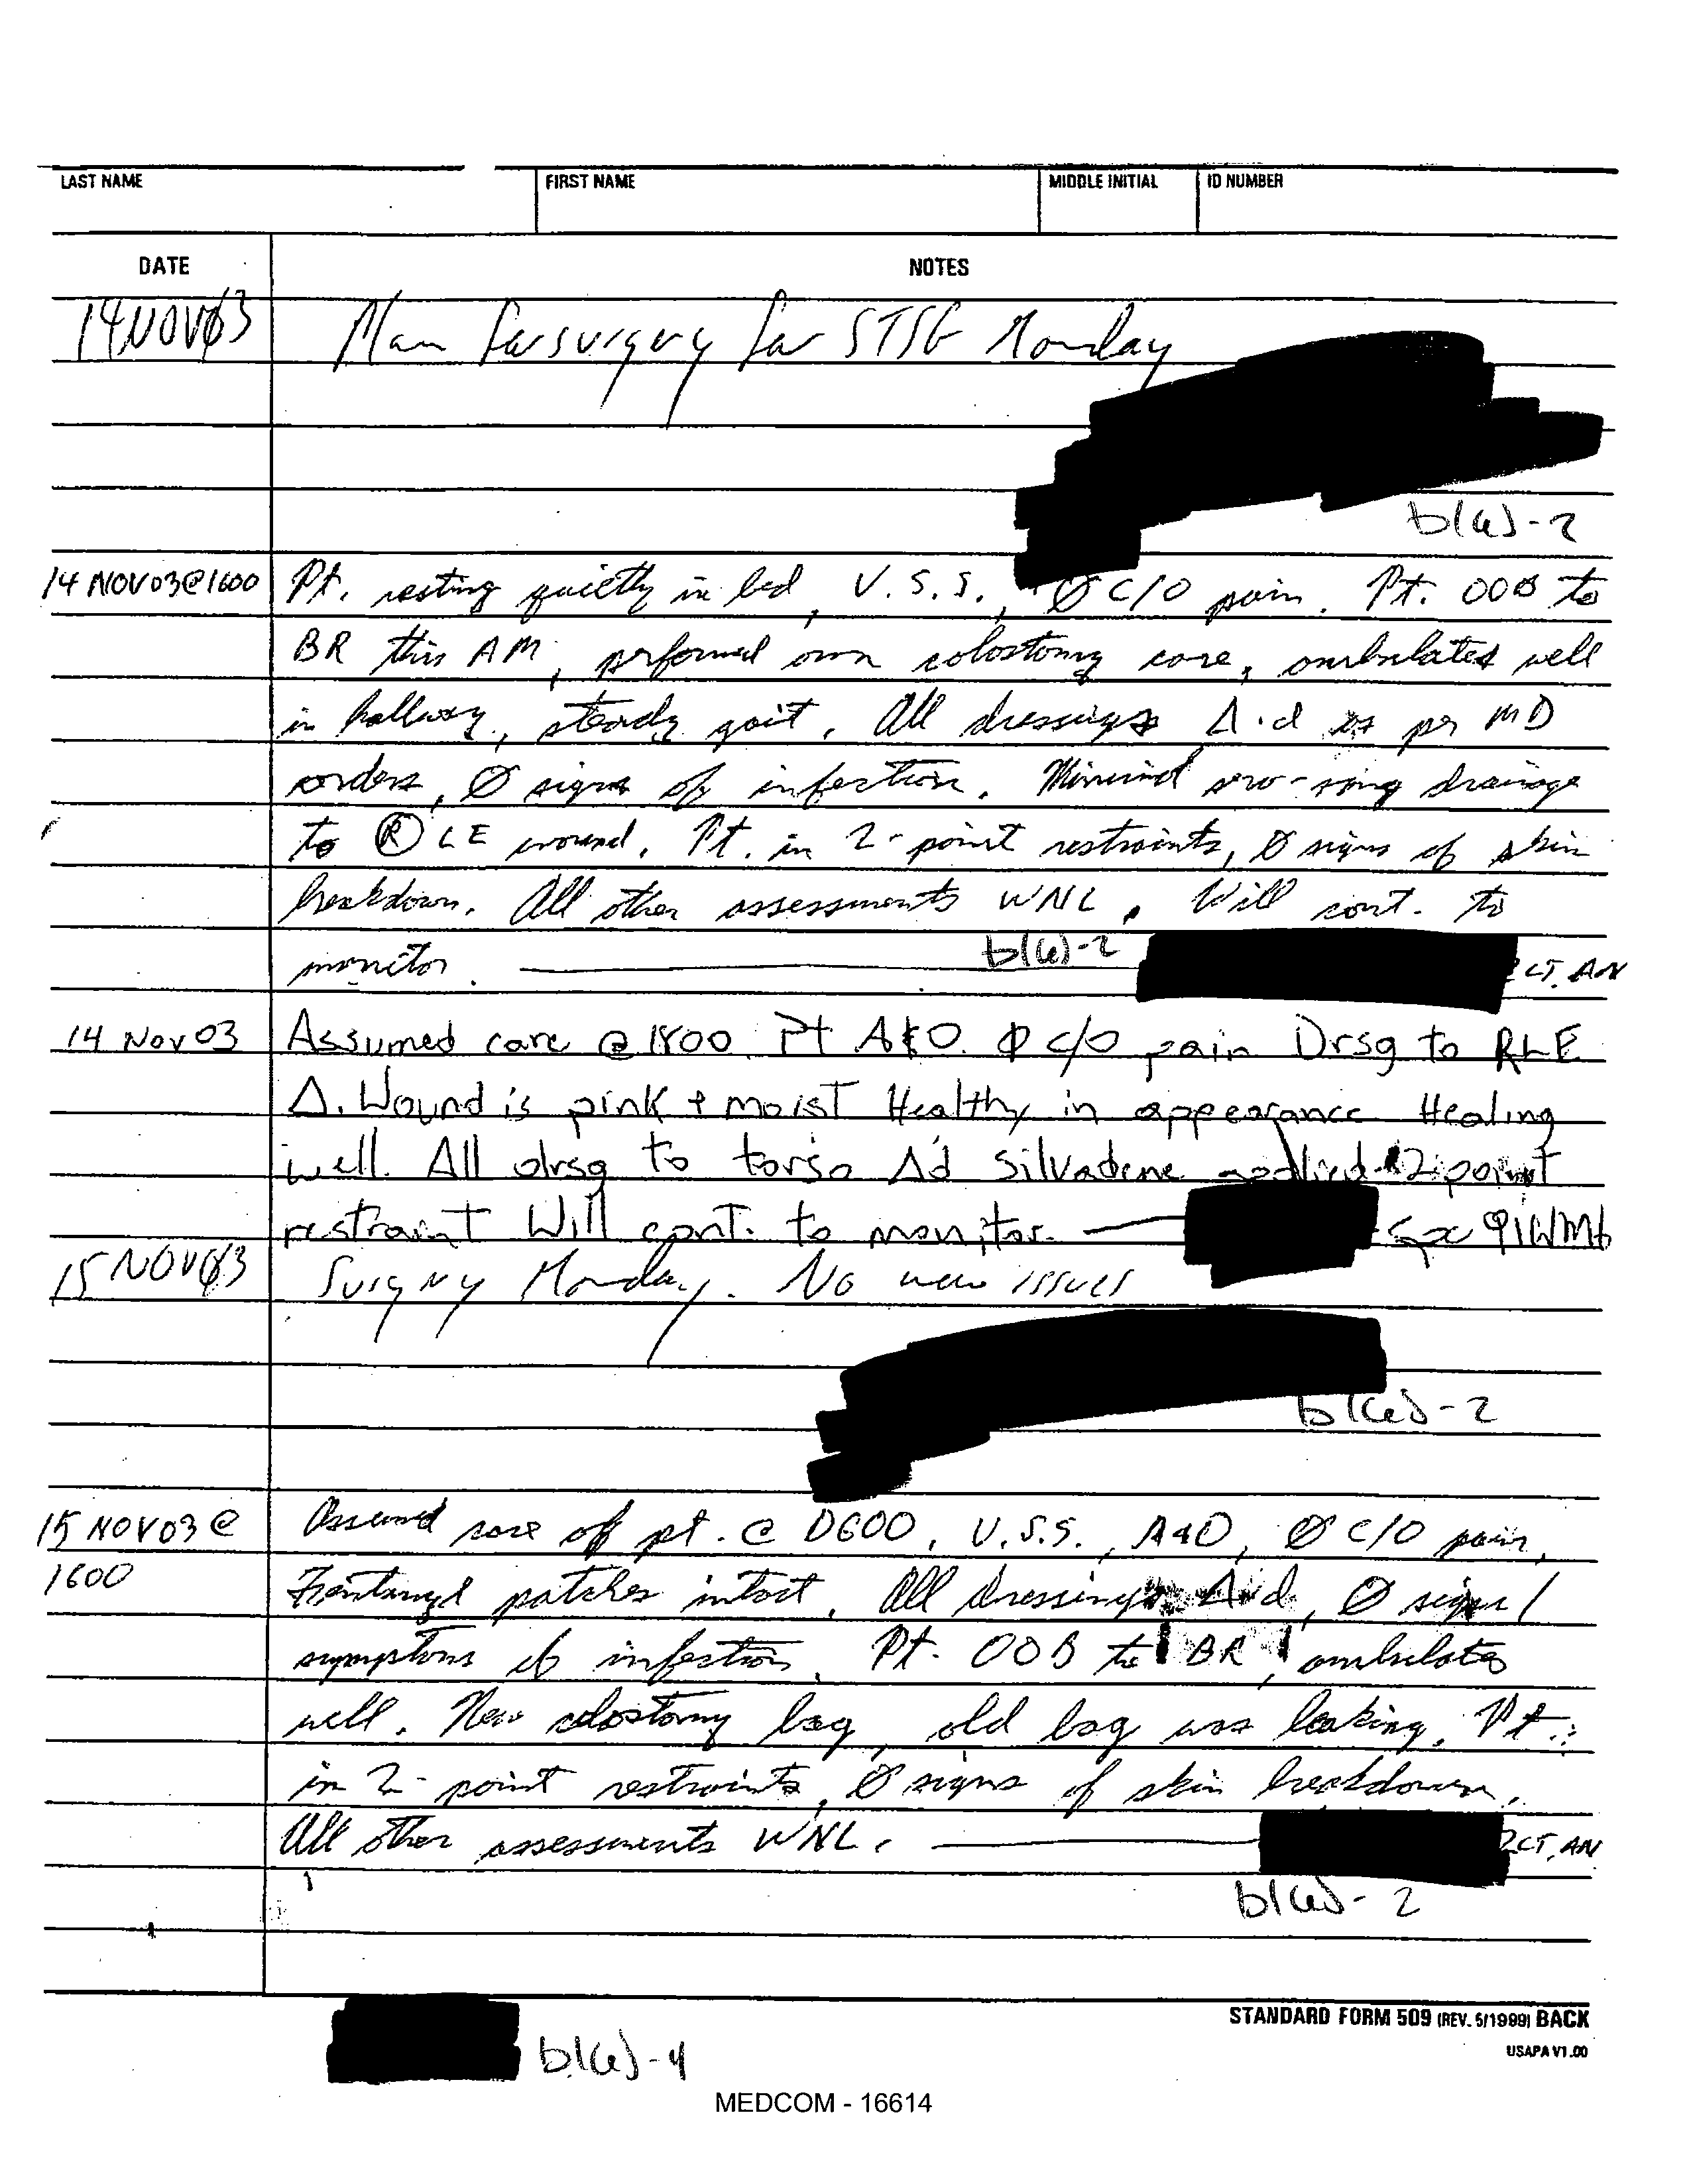 LAST NAME FIRST NAME MIDDLE INITIAL ID NUMBER
DATE NOTES
14NOV03 Plan for surgery for STSG Monday
b(6)-2
14 NOV 03@1600 Pt. resting quietly in bed, V.S.S., Ø C/O pain. Pt. OOB to
BR this AM, performed own colostomy care, ambulates well
in hallway, steady gait. All dressings Δ'd as per MD
orders, Ø signs of infection. Minimal sero-sang drainage
to Ⓡ LE wound. Pt. in 2-point restraints, Ø signs of skin
breakdown. All other assessments WNL. Will cont. to
monitor. b(6)-2 CT, AN
14 Nov 03 Assumed care @ 1800. Pt A&O. Ø c/o pain Drsg to RLE
Δ. Wound is pink + moist Healthy in appearance Healing
well. All drsg to torso Δ'd Silvadene applied 2 point
restraint Will cont. to monitor. Spc 91WM6
15 NOV03 Surgery Monday. No new issues
b(6)-2
15 NOV 03 @ Assumed care of pt. @ 0600, V.S.S., A&O, Ø C/O pain,
1600 Fentanyl patches intact. All dressings Δ'd, Ø signs/
symptoms of infection. Pt. OOB to BR, ambulates
well. New colostomy bag, old bag was leaking. Pt.
in 2-point restraints, Ø signs of skin breakdown.
All other assessments WNL. CT, AN
b(6)-2
STANDARD FORM 509 (REV. 5/1999) BACK
USAPA V1.00
b(6)-4
MEDCOM - 16614